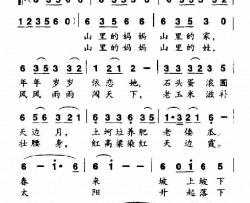 1 2 3 5 6 0
6 3 5 3 5 2 3 5 3 6
山里的妈妈 山里的家,
山里的妈妈 山里的姓,
6 3 5 3 2 3 2 1 2 1 2 - 3 3 2 3 5 3 2
年年岁岁 依恋她, 石头蛋滚圆
风风雨雨 闯天下, 老玉米滋补
1 2 1 6 - 6 3 5 3 3 2 2 1 · 3 2 1
天边月, 土坷垃养肥 老倭瓜。
壮腰身, 红高粱染红 天边霞。
6 - 6 - 6 0 1 6 5
春 来 坡上坡下
太 阳 升起落下